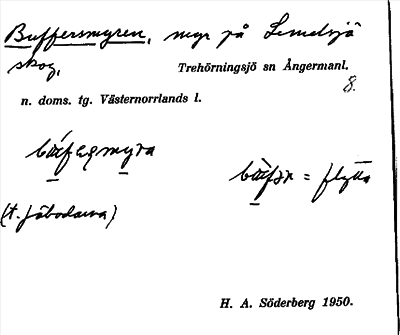 Buffersmyren, myr på Lemelsjä
skog,
Trehörningsjö sn Ångermanl.
8.
n. doms. tg. Västernorrlands l.
= flytta
(t. fäbodarna)
H. A. Söderberg 1950.